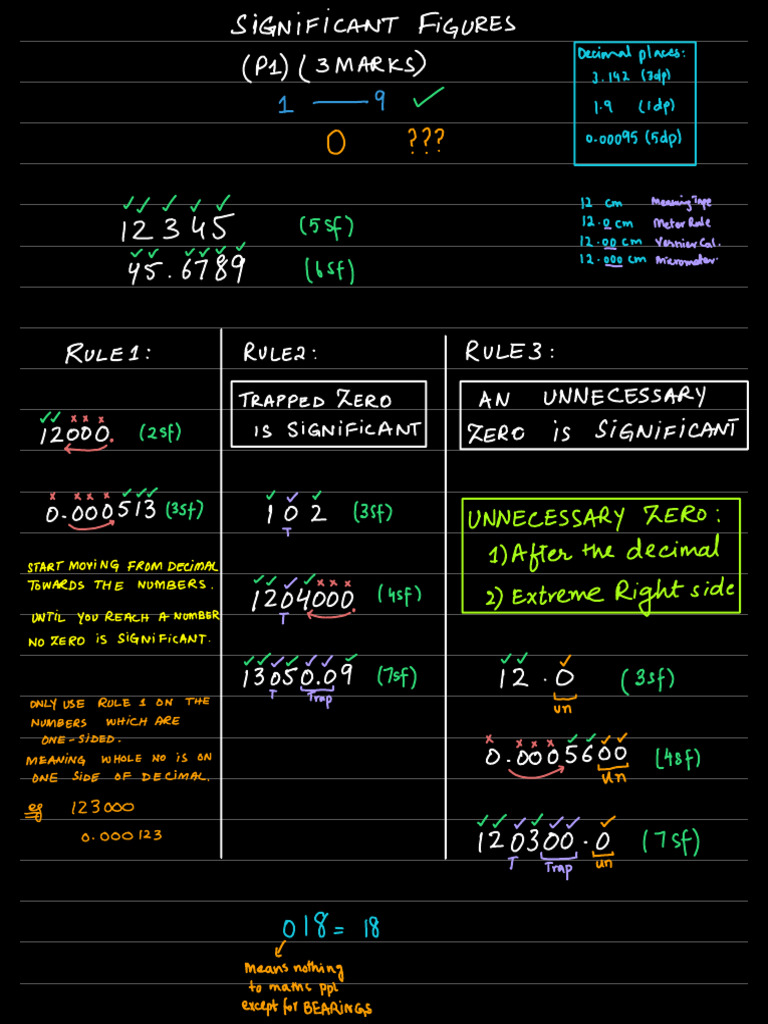 SIGNIFICANT FIGURES
(P1) (3 MARKS)
1 — 9 ✓
0 ???
Decimal places:
3.142 (3dp)
1.9 (1dp)
0.00095 (5dp)
12345 (5sf)
45.6789 (6sf)
12 cm Measuring Tape
12.0 cm Meter Rule
12.00 cm Vernier Cal.
12.000 cm Micrometer
RULE 1:
12000. (2sf)
0.000513 (3sf)
START MOVING FROM DECIMAL
TOWARDS THE NUMBERS.
UNTIL YOU REACH A NUMBER
NO ZERO IS SIGNIFICANT.
ONLY USE RULE 1 ON THE
NUMBERS WHICH ARE
ONE-SIDED.
MEANING WHOLE NO IS ON
ONE SIDE OF DECIMAL.
eg 123000
0.000123
RULE 2:
TRAPPED ZERO
IS SIGNIFICANT
102 (3sf)
T
1204000. (4sf)
T
13050.09 (7sf)
T Trap
RULE 3:
AN UNNECESSARY
ZERO IS SIGNIFICANT
UNNECESSARY ZERO:
1) After the decimal
2) Extreme Right side
12.0 (3sf)
un
0.0005600 (4sf)
un
120300.0 (7sf)
T Trap un
018 = 18
Means nothing
to maths ppl
except for BEARINGS